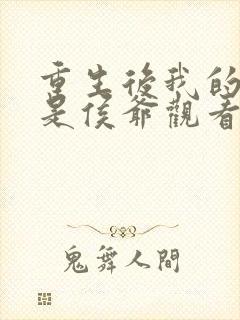 重生後我的
是侯爺觀看
鬼舞人間